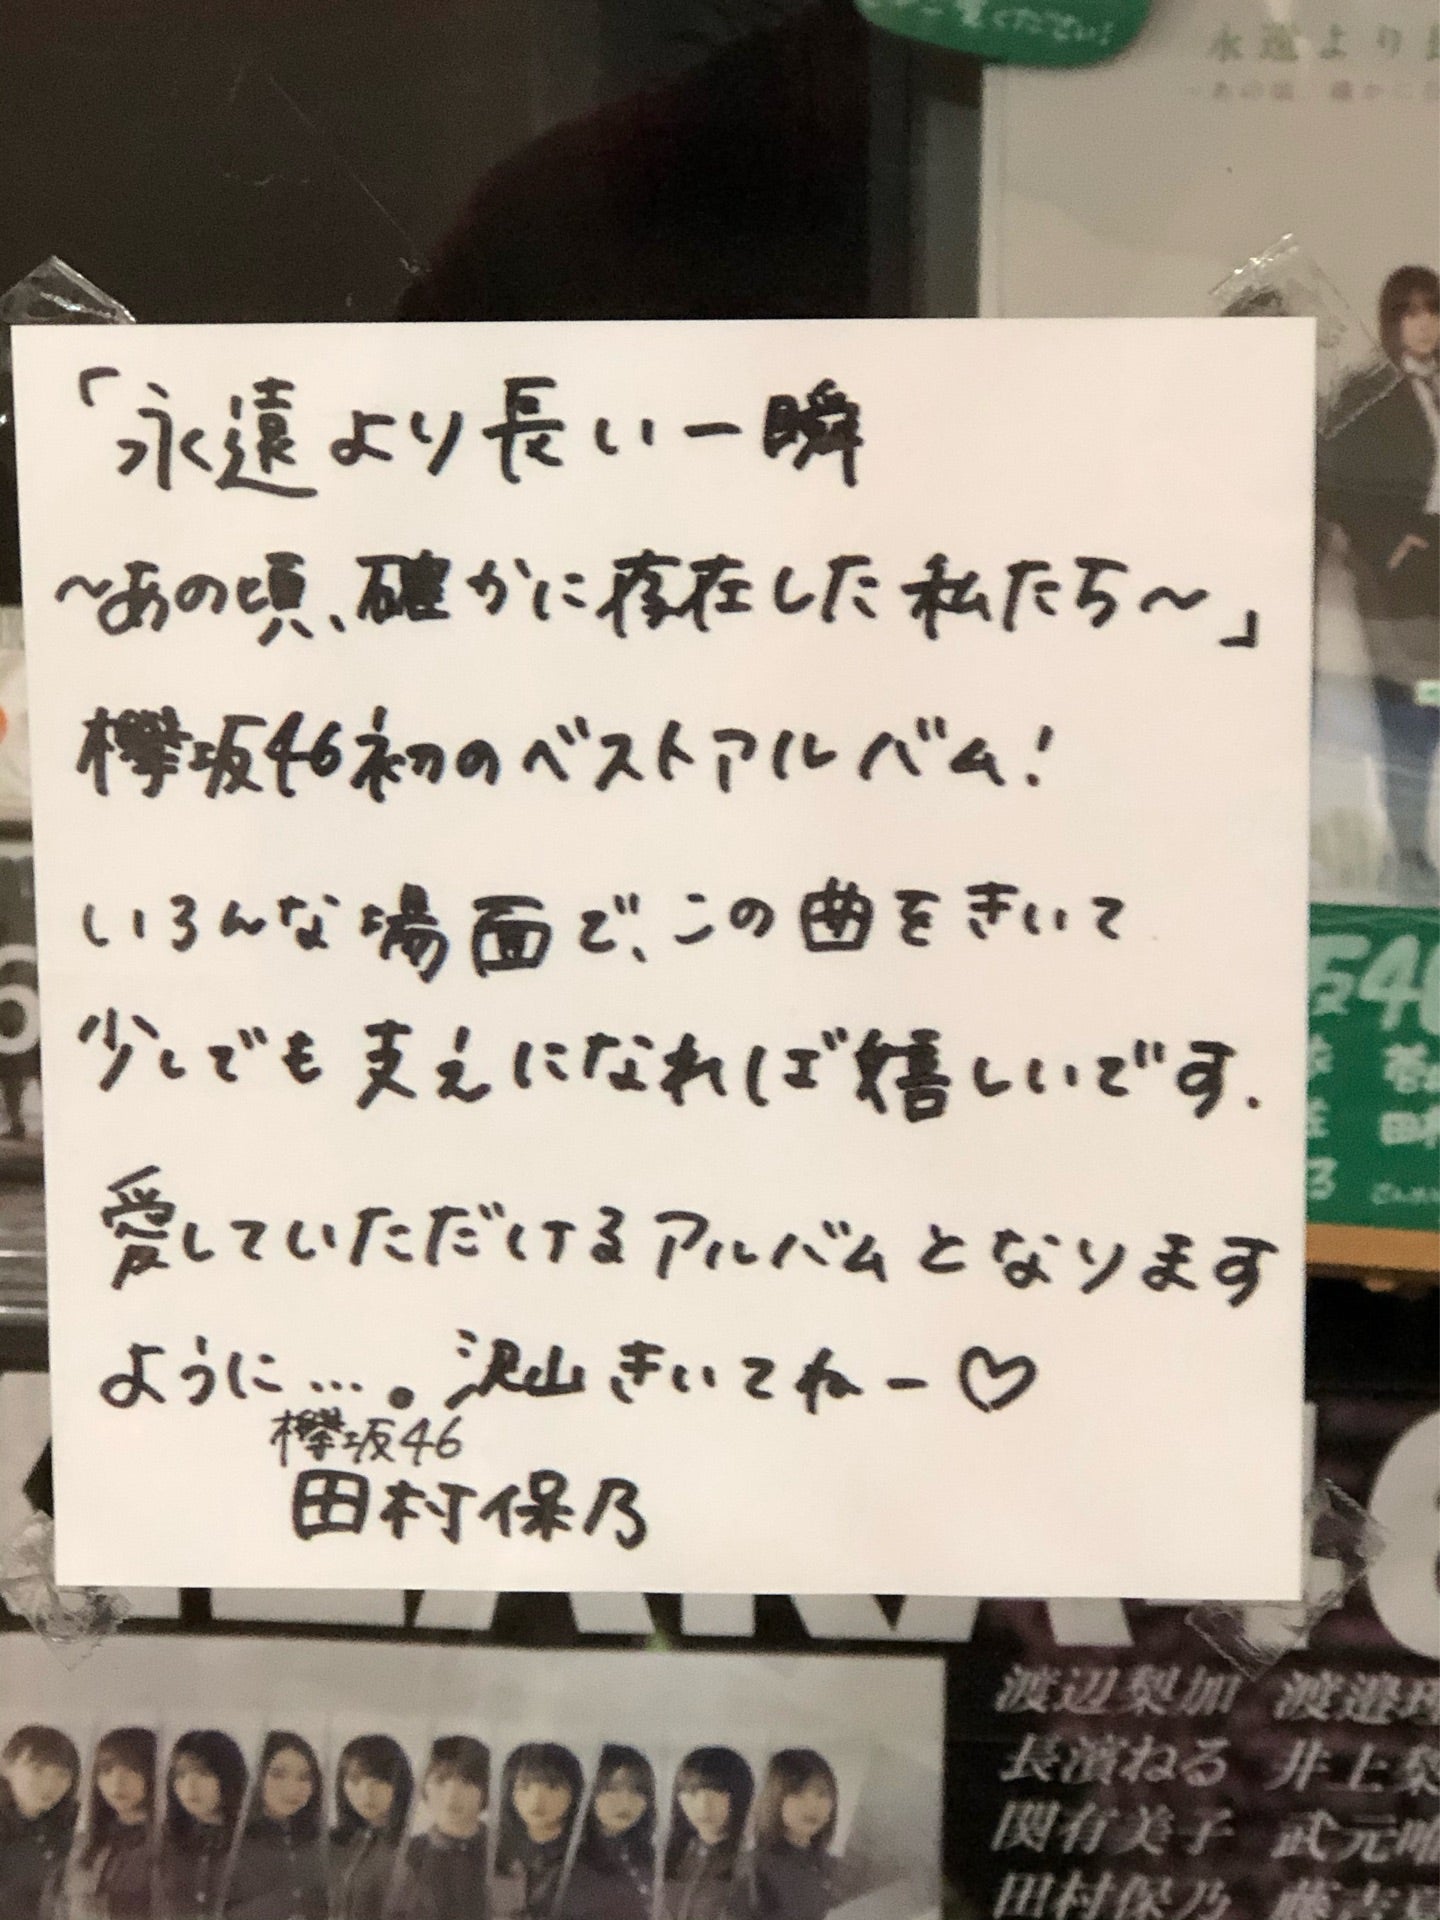 永遠より
「永遠より長い一瞬
〜あの頃、確かに存在した私たち〜」
欅坂46初のベストアルバム!
いろんな場面で、この曲をきいて
少しでも支えになれば嬉しいです.
愛していただけるアルバムとなります
ように…。沢山きいてねー♡
欅坂46
田村保乃
坂46
渡辺梨加 渡邉
長濱ねる 井上梨
関有美子 武元唯
田村保乃 藤吉夏